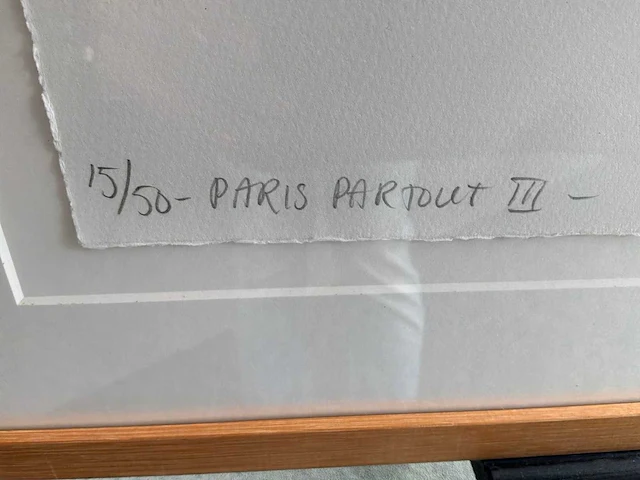 15/50- PARIS PARTOUT III -